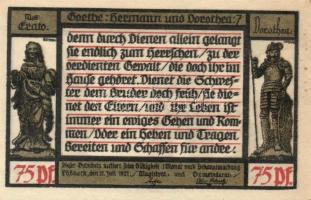 Aus Erato.
Goethe: Hermann und Dorothea: 7
Dorothea.
denn durch Dienen allein gelangt
sie endlich zum Herrschen / zu der
verdienten Gewalt / die doch ihr im
Hause gehöret. Dienet die Schwes-
ter dem Bruder doch früh / sie die-
net den Eltern / und ihr Leben ist
immer ein ewiges Gehen und Kom-
men / Oder ein Heben und Tragen,
Bereiten und Schaffen für andre.
75 Pf.
75 Pf.
Dieser Gutschein verliert seine Gültigkeit 1 Monat nach Bekanntmachung
den 11. Juli 1921. Magistrat und